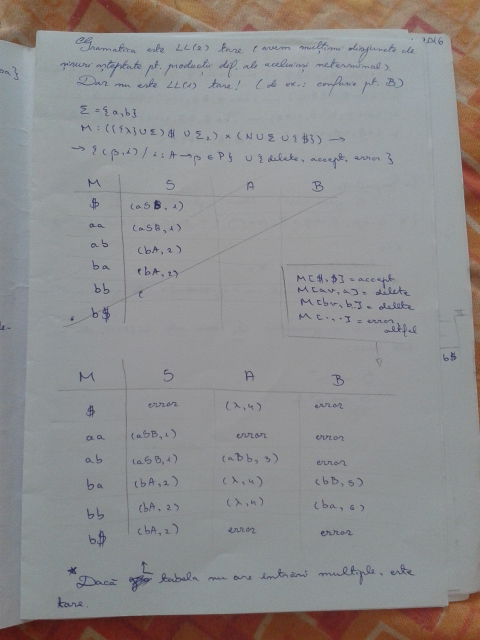 Gramatica este LL(2) tare (avem multimi disjuncte de
siruri asteptate pt. productii dif. ale aceluiasi neterminal)
Dar nu este LL(1) tare! (de ex.: confuzie pt. B)
Σ = {a,b}
M: (({λ}∪Σ)$ ∪ Σ₂) × (N∪Σ∪{$}) →
→ {(β,i) / i: A→β ∈ P} ∪ {delete, accept, error}
M S A B
$ (aSB, 1)
aa (aSB, 1)
ab (bA, 2)
ba (bA, 2)
bb (
b$
M[$,$] = accept
M[av,a] = delete
M[bv,b] = delete
M[·,·] = error
altfel
b$
M S A B
$ error (λ,4) error
aa (aSB,1) error error
ab (aSB,1) (aBb,3) error
ba (bA,2) (λ,4) (bB,5)
bb (bA,2) (λ,4) (ba,6)
b$ (bA,2) error error
* Dacă tabela nu are intrări multiple, este
tare.